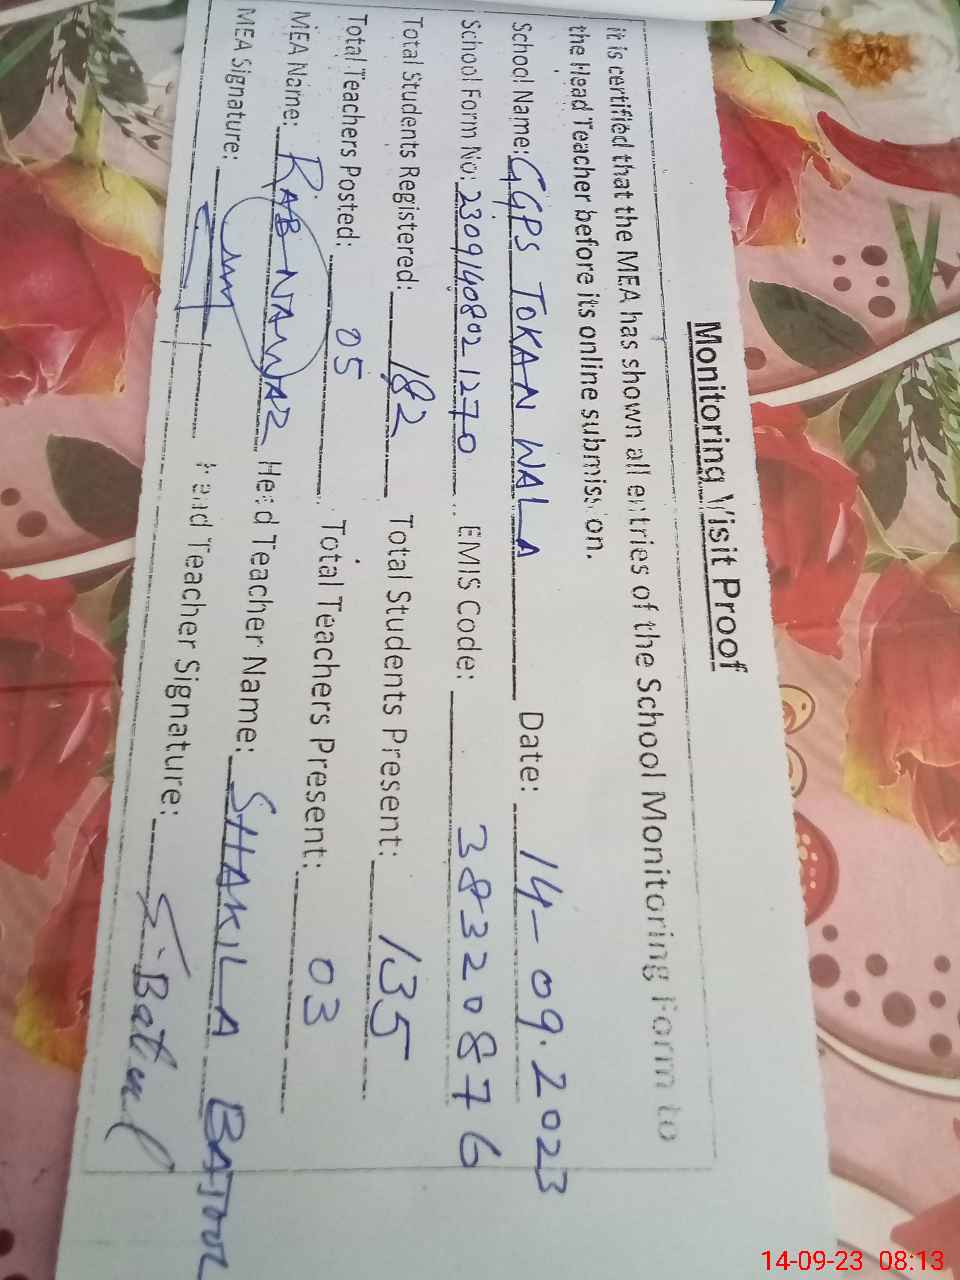 Monitoring Visit Proof
it is certified that the MEA has shown all entries of the School Monitoring Form to
the Head Teacher before its online submission.
School Name: GGPS TOKAN WALA Date: 14-09.2023
School Form No: 23091408021270 EMIS Code: 38320876
Total Students Registered: 182 Total Students Present: 135
Total Teachers Posted: 05 Total Teachers Present: 03
MEA Name: RAB NAWAZ Head Teacher Name: SHAKILA BATOOL
MEA Signature: Head Teacher Signature: S. Batul
14-09-23 08:13